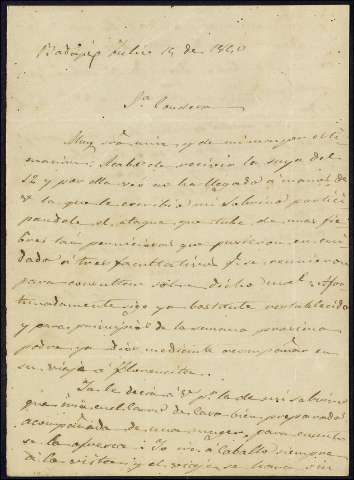 Badajoz Julio 14 de 1860
Sra Condesa
Muy sra mia y de mi mayor esti
macion: Acabo de recivir la suya del
12 y por ella veo no ha llegado á manos de
Vd la que le escribió mi Sobrina partici
pandole el ataque que tube de unas fie
bres tan perniciosas que pusieron en cui
dado á tres facultativos qe se reunieron
para consultar sobre dicho mal. Afor
tunadamente sigo ya bastante restablecido
y para principios de la semana proxima
podre ya Dios mediante acompañar en
su viaje á Florencita.
Ya le decia á Vd pr la de mi sobrina
que iria en el carro de bien preparado
acompañada de una muger, para cuanto
se la ofrezca: Yo iré á Caballo siempre
á la vista; y el viaje se hara sin